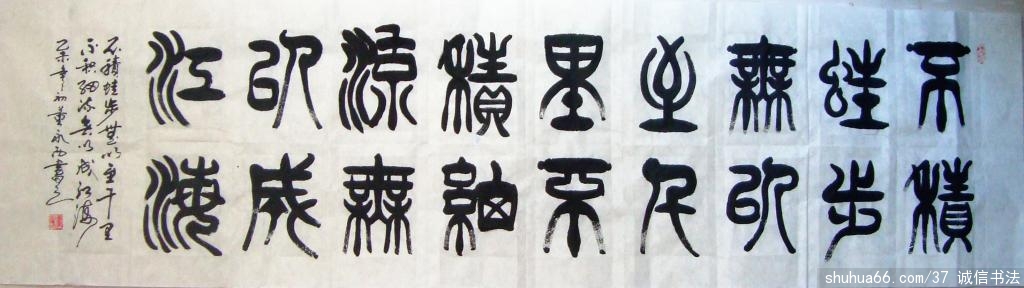 不積
蛙步
無以
至千
里不
積細
源無
以成
江海
不積蛙步無以至千里
不积細流無以成江海
乙未年初董永西書
shuhua66.com/37 诚信书法